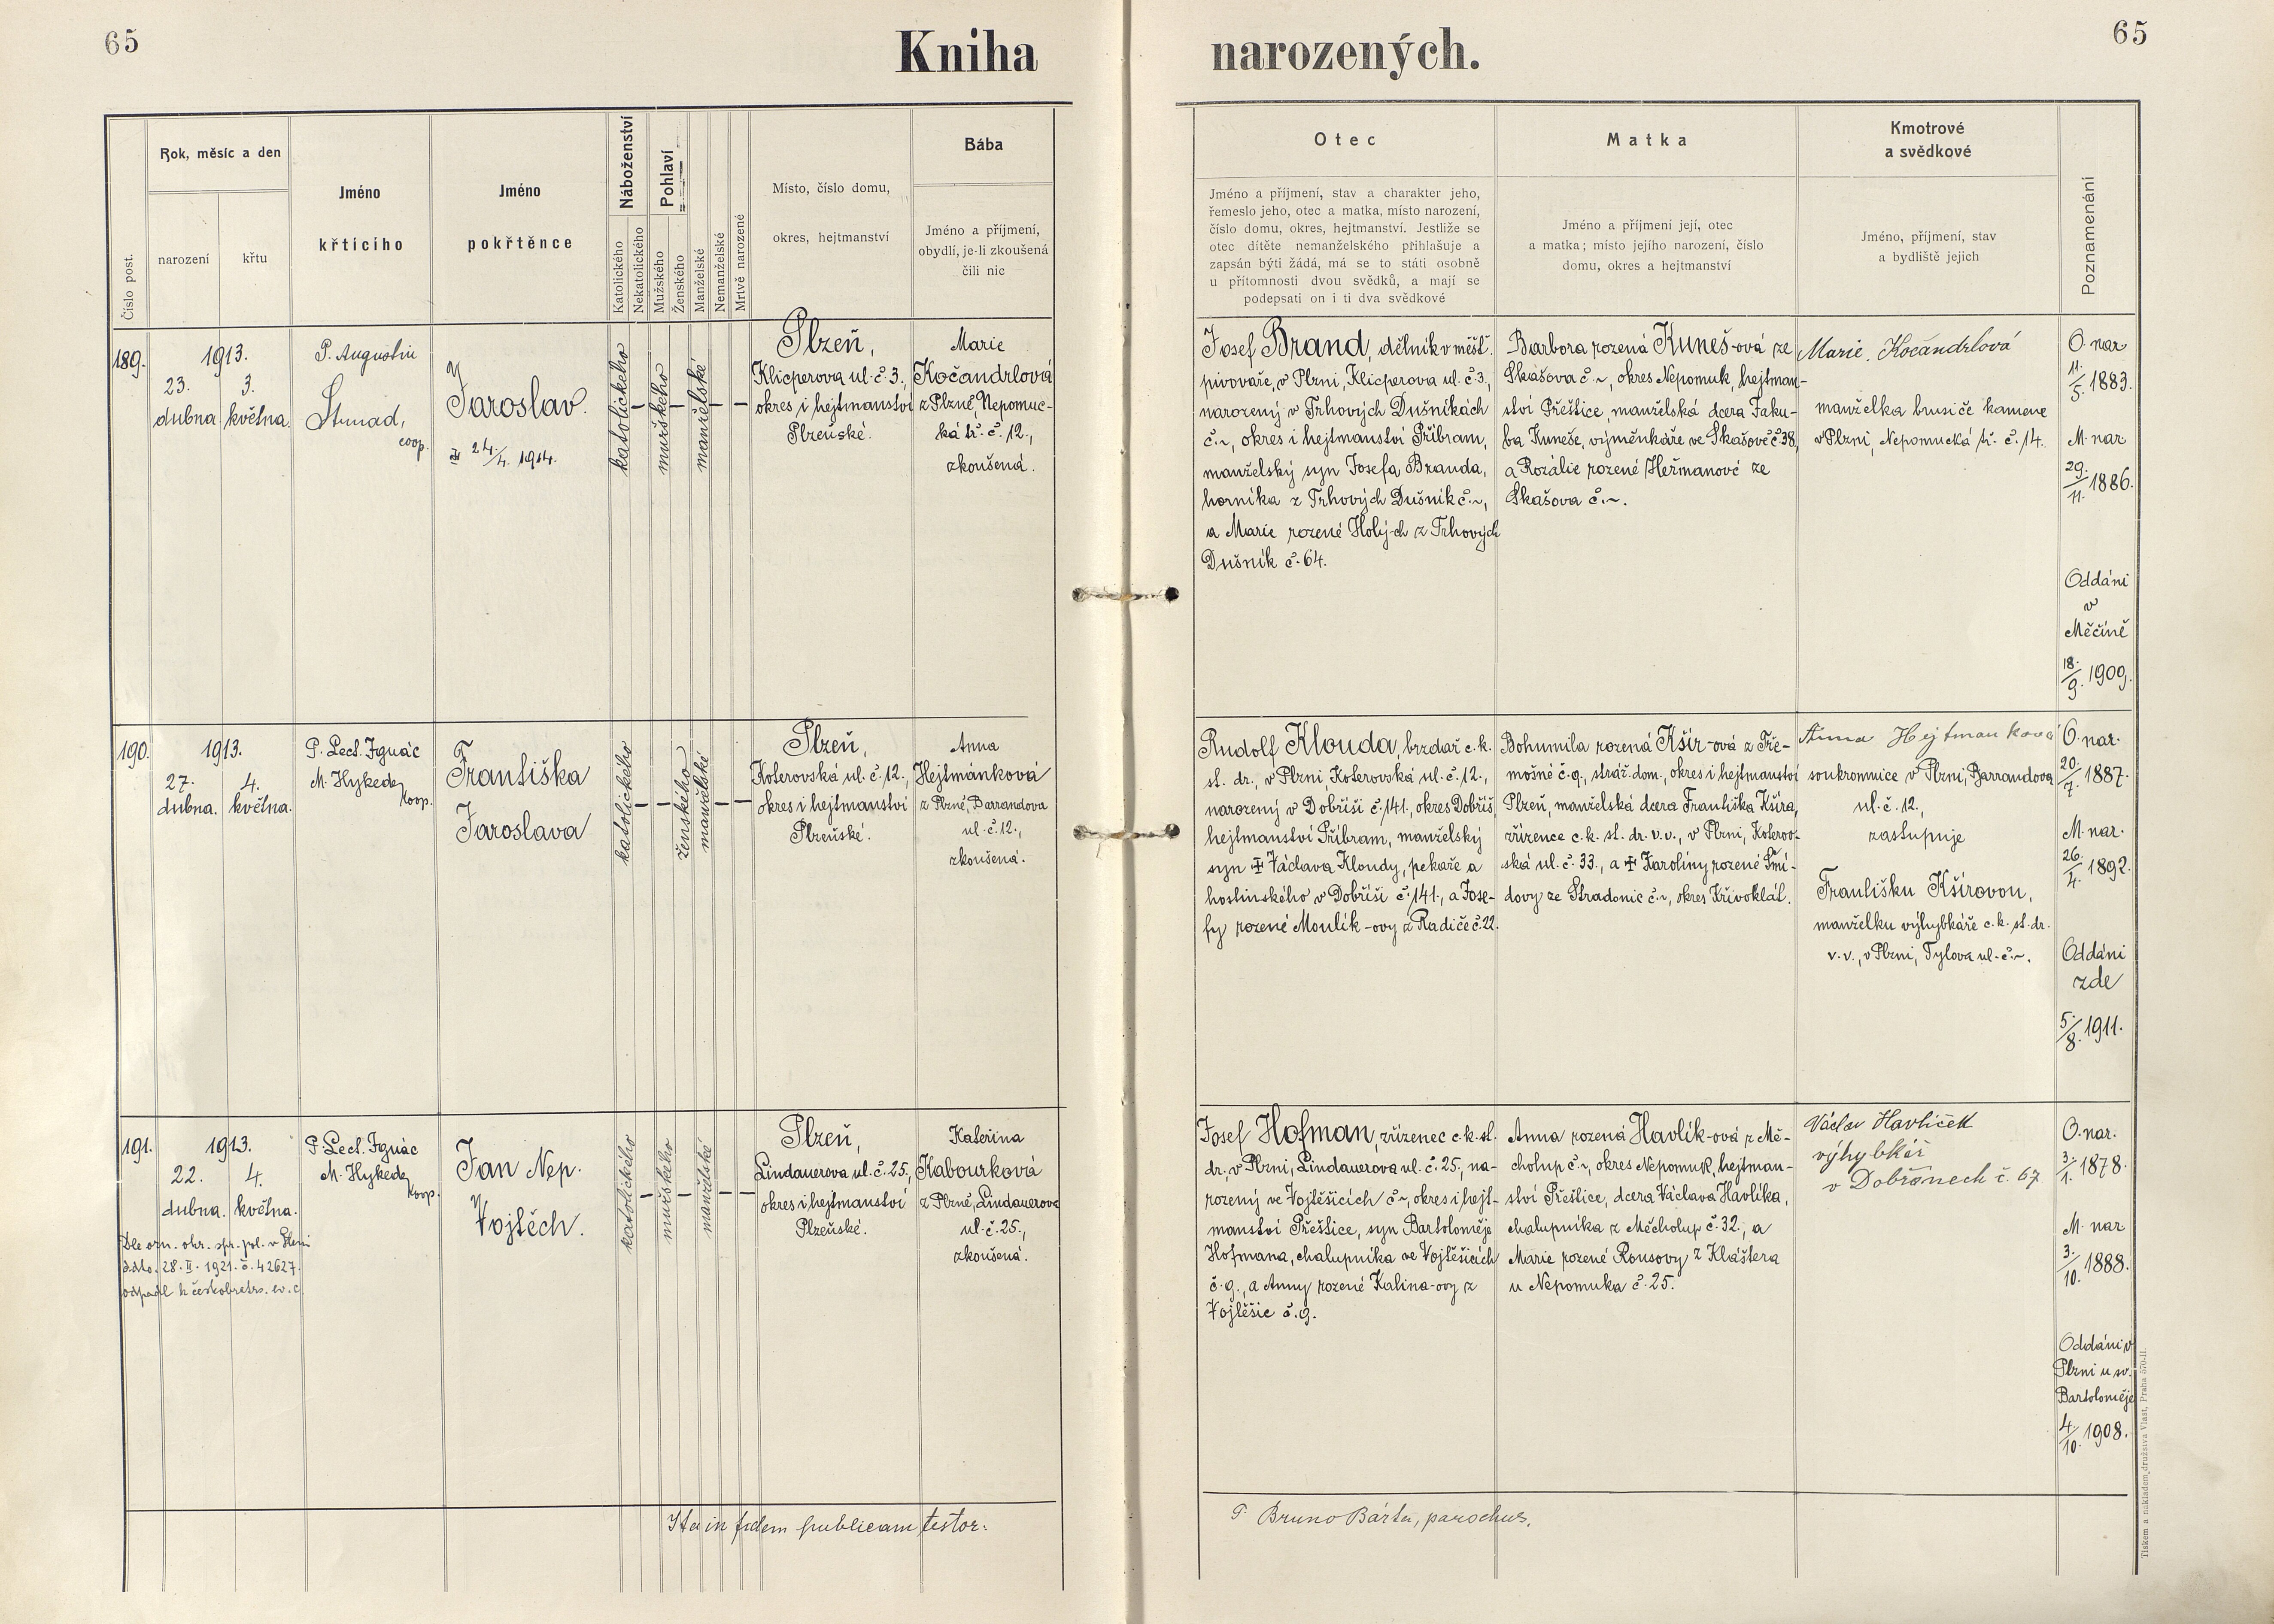 65
Kniha narozených.
65
Číslo post.
Rok, měsíc a den
narození
křtu
Jméno
křticího
Jméno
pokřtěnce
Náboženství
Katolického
Nekatolického
Pohlaví
Mužského
Ženského
Manželské
Nemanželské
Mrtvě narozené
Místo, číslo domu,
okres, hejtmanství
Bába
Jméno a příjmení,
obydlí, je-li zkoušená
čili nic
Otec
Jméno a příjmení, stav a charakter jeho,
řemeslo jeho, otec a matka, místo narození,
číslo domu, okres, hejtmanství. Jestliže se
otec dítěte nemanželského přihlašuje a
zapsán býti žádá, má se to státi osobně
u přítomnosti dvou svědků, a mají se
podepsati on i ti dva svědkové
Matka
Jméno a příjmení její, otec
a matka; místo jejího narození, číslo
domu, okres a hejtmanství
Kmotrové
a svědkové
Jméno, příjmení, stav
a bydliště jejich
Poznamenání
189.
1913.
23. 3.
dubna. května.
P. Augustin
Strnad,
coop.
Jaroslav.
24/4. 1914.
katolického
mužského
manželské
Plzeň,
Klicperova ul. č. 3.,
okres i hejtmanství
Plzeňské.
Marie
Kočandrlová
z Plzně, Nepomuc-
ká tř. č. 12.,
zkoušená.
Josef Brand, dělník v měšť.
pivovaře, v Plzni, Klicperova ul. č. 3.,
narozený v Trhových Dušníkách
č. ~, okres i hejtmanství Příbram,
manželský syn Josefa Branda,
horníka z Trhových Dušník č. ~,
a Marie rozené Holých z Trhových
Dušník č. 64.
Barbora rozená Kuneš-ová ze
Skašova č. ~, okres Nepomuk, hejtman-
ství Přeštice, manželská dcera Jaku-
ba Kuneše, výměnkáře ve Skašově č. 38,
a Rozálie rozené Heřmanové ze
Skašova č. ~.
Marie Kočandrlová
manželka brusiče kamene
v Plzni, Nepomucká tř. č. 14.
O. nar
11./5. 1883.
M. nar
29./11. 1886.
Oddáni
v
Měčíně
18./9. 1909.
190.
1913.
27. 4.
dubna. května.
P. Lect. Ignác
M. Hykede,
koop.
Františka
Jaroslava
katolického
ženského
manželské
Plzeň,
Koterovská ul. č. 12.,
okres i hejtmanství
Plzeňské.
Anna
Hejtmánková
z Plzně, Barrandova
ul. č. 12.,
zkoušená.
Rudolf Klouda, brzdař c. k.
st. dr., v Plzni, Koterovská ul. č. 12.,
narozený v Dobříši č. 141., okres Dobříš,
hejtmanství Příbram, manželský
syn ✝ Václava Kloudy, pekaře a
hostinského v Dobříši č. 141., a Jose-
fy rozené Moulík-ovy z Radíče č. 22.
Bohumila rozená Kšír-ová z Tře-
mošné č. 9., stráž. dom., okres i hejtmanství
Plzeň, manželská dcera Františka Kšíra,
zřízence c. k. st. dr. v. v., v Plzni, Koterov-
ská ul. č. 33., a ✝ Karolíny rozené Šmí-
dovy ze Stradonic č. ~, okres Křivoklát.
Anna Hejtmanková
soukromnice v Plzni, Barrandova
ul. č. 12.,
zastupuje
Františku Kšírovou,
manželku výhybkáře c. k. st. dr.
v. v., v Plzni, Tylova ul. č. ~.
O. nar.
20./7. 1887.
M. nar.
26./4. 1892.
Oddáni
zde
5./8. 1911.
191.
1913.
22. 4.
dubna. května.
P. Lect. Ignác
M. Hykede,
koop.
Jan Nep.
Vojtěch.
katolického
mužského
manželské
Plzeň,
Lindauerova ul. č. 25.,
okres i hejtmanství
Plzeňské.
Kateřina
Kabourková
z Plzně, Lindauerova
ul. č. 25.,
zkoušená.
Dle ozn. okr. spr. pol. v Plzni
ddto. 28. II. 1921. č. 42627.
odpadl k českobratrs. ev. c.
Josef Hofman, zřízenec c. k. st.
dr., v Plzni, Lindauerova ul. č. 25., na-
rozený ve Vojtěšicích č. ~, okres i hejt-
manství Přeštice, syn Bartoloměje
Hofmana, chalupníka ve Vojtěšicích
č. 9., a Anny rozené Kalina-ovy z
Vojtěšic č. 9.
Anna rozená Havlík-ová z Mě-
cholup č. ~, okres Nepomuk, hejtman-
ství Přeštice, dcera Václava Havlíka,
chalupníka z Měcholup č. 32., a
Marie rozené Rousovy z Kláštera
u Nepomuka č. 25.
Václav Havlíček
výhybkář
v Dobřanech č. 67
O. nar.
3./1. 1878.
M. nar
3./10. 1888.
Oddáni v
Plzni u sv.
Bartoloměje
4./10. 1908.
Ita in fidem publicam testor:
P. Bruno Bárta, parochus.
Tiskem a nákladem družstva Vlast, Praha 570-II.